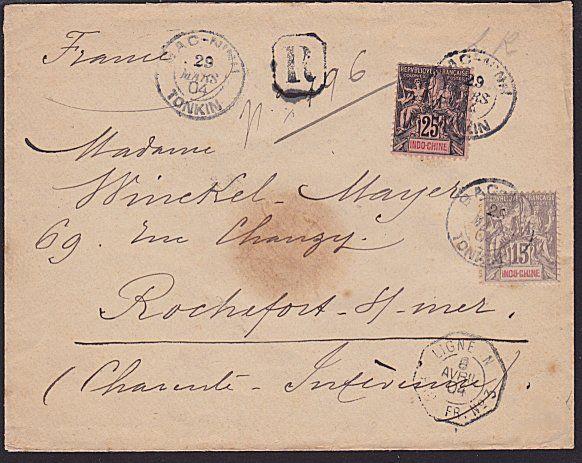 France
BAC-NINH
29
MARS
04
TONKIN
R
N° 196
BAC-NINH
29
MARS
TONKIN
REPUBLIQUE FRANÇAISE
COLONIES POSTES
25
INDO-CHINE
Madame
Winckel-Mayer
69. Rue Chanzy.
BAC-NINH
29
TONKIN
REPUBLIQUE FRANÇAISE
15
INDO-CHINE
Rochefort-s/-mer.
(Charente-Inférieure)
LIGNE N
8
AVRIL
04
FR. No 3